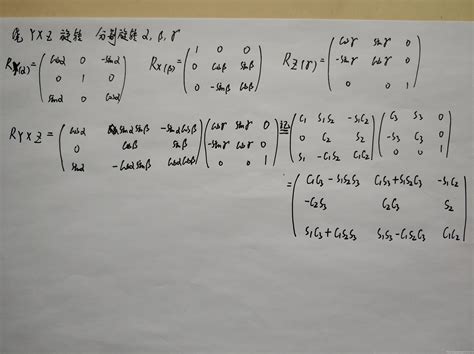 绕 YXZ 旋转 分别旋转 α, β, γ
Ry(α) = ( cosα 0 -sinα ; 0 1 0 ; sinα 0 cosα ) Rx(β) = ( 1 0 0 ; 0 cosβ sinβ ; 0 -sinβ cosβ ) Rz(γ) = ( cosγ sinγ 0 ; -sinγ cosγ 0 ; 0 0 1 )
RYXZ = ( cosα sinαsinβ -sinαcosβ ; 0 cosβ sinβ ; sinα -cosαsinβ cosαcosβ ) ( cosγ sinγ 0 ; -sinγ cosγ 0 ; 0 0 1 ) = ( C1 S1S2 -S1C2 ; 0 C2 S2 ; S1 -C1S2 C1C2 ) ( C3 S3 0 ; -S3 C3 0 ; 0 0 1 )
= ( C1C3 - S1S2S3 C1S3 + S1S2C3 -S1C2
-C2S3 C2C3 S2
S1C3 + C1S2S3 S1S3 - C1S2C3 C1C2 )